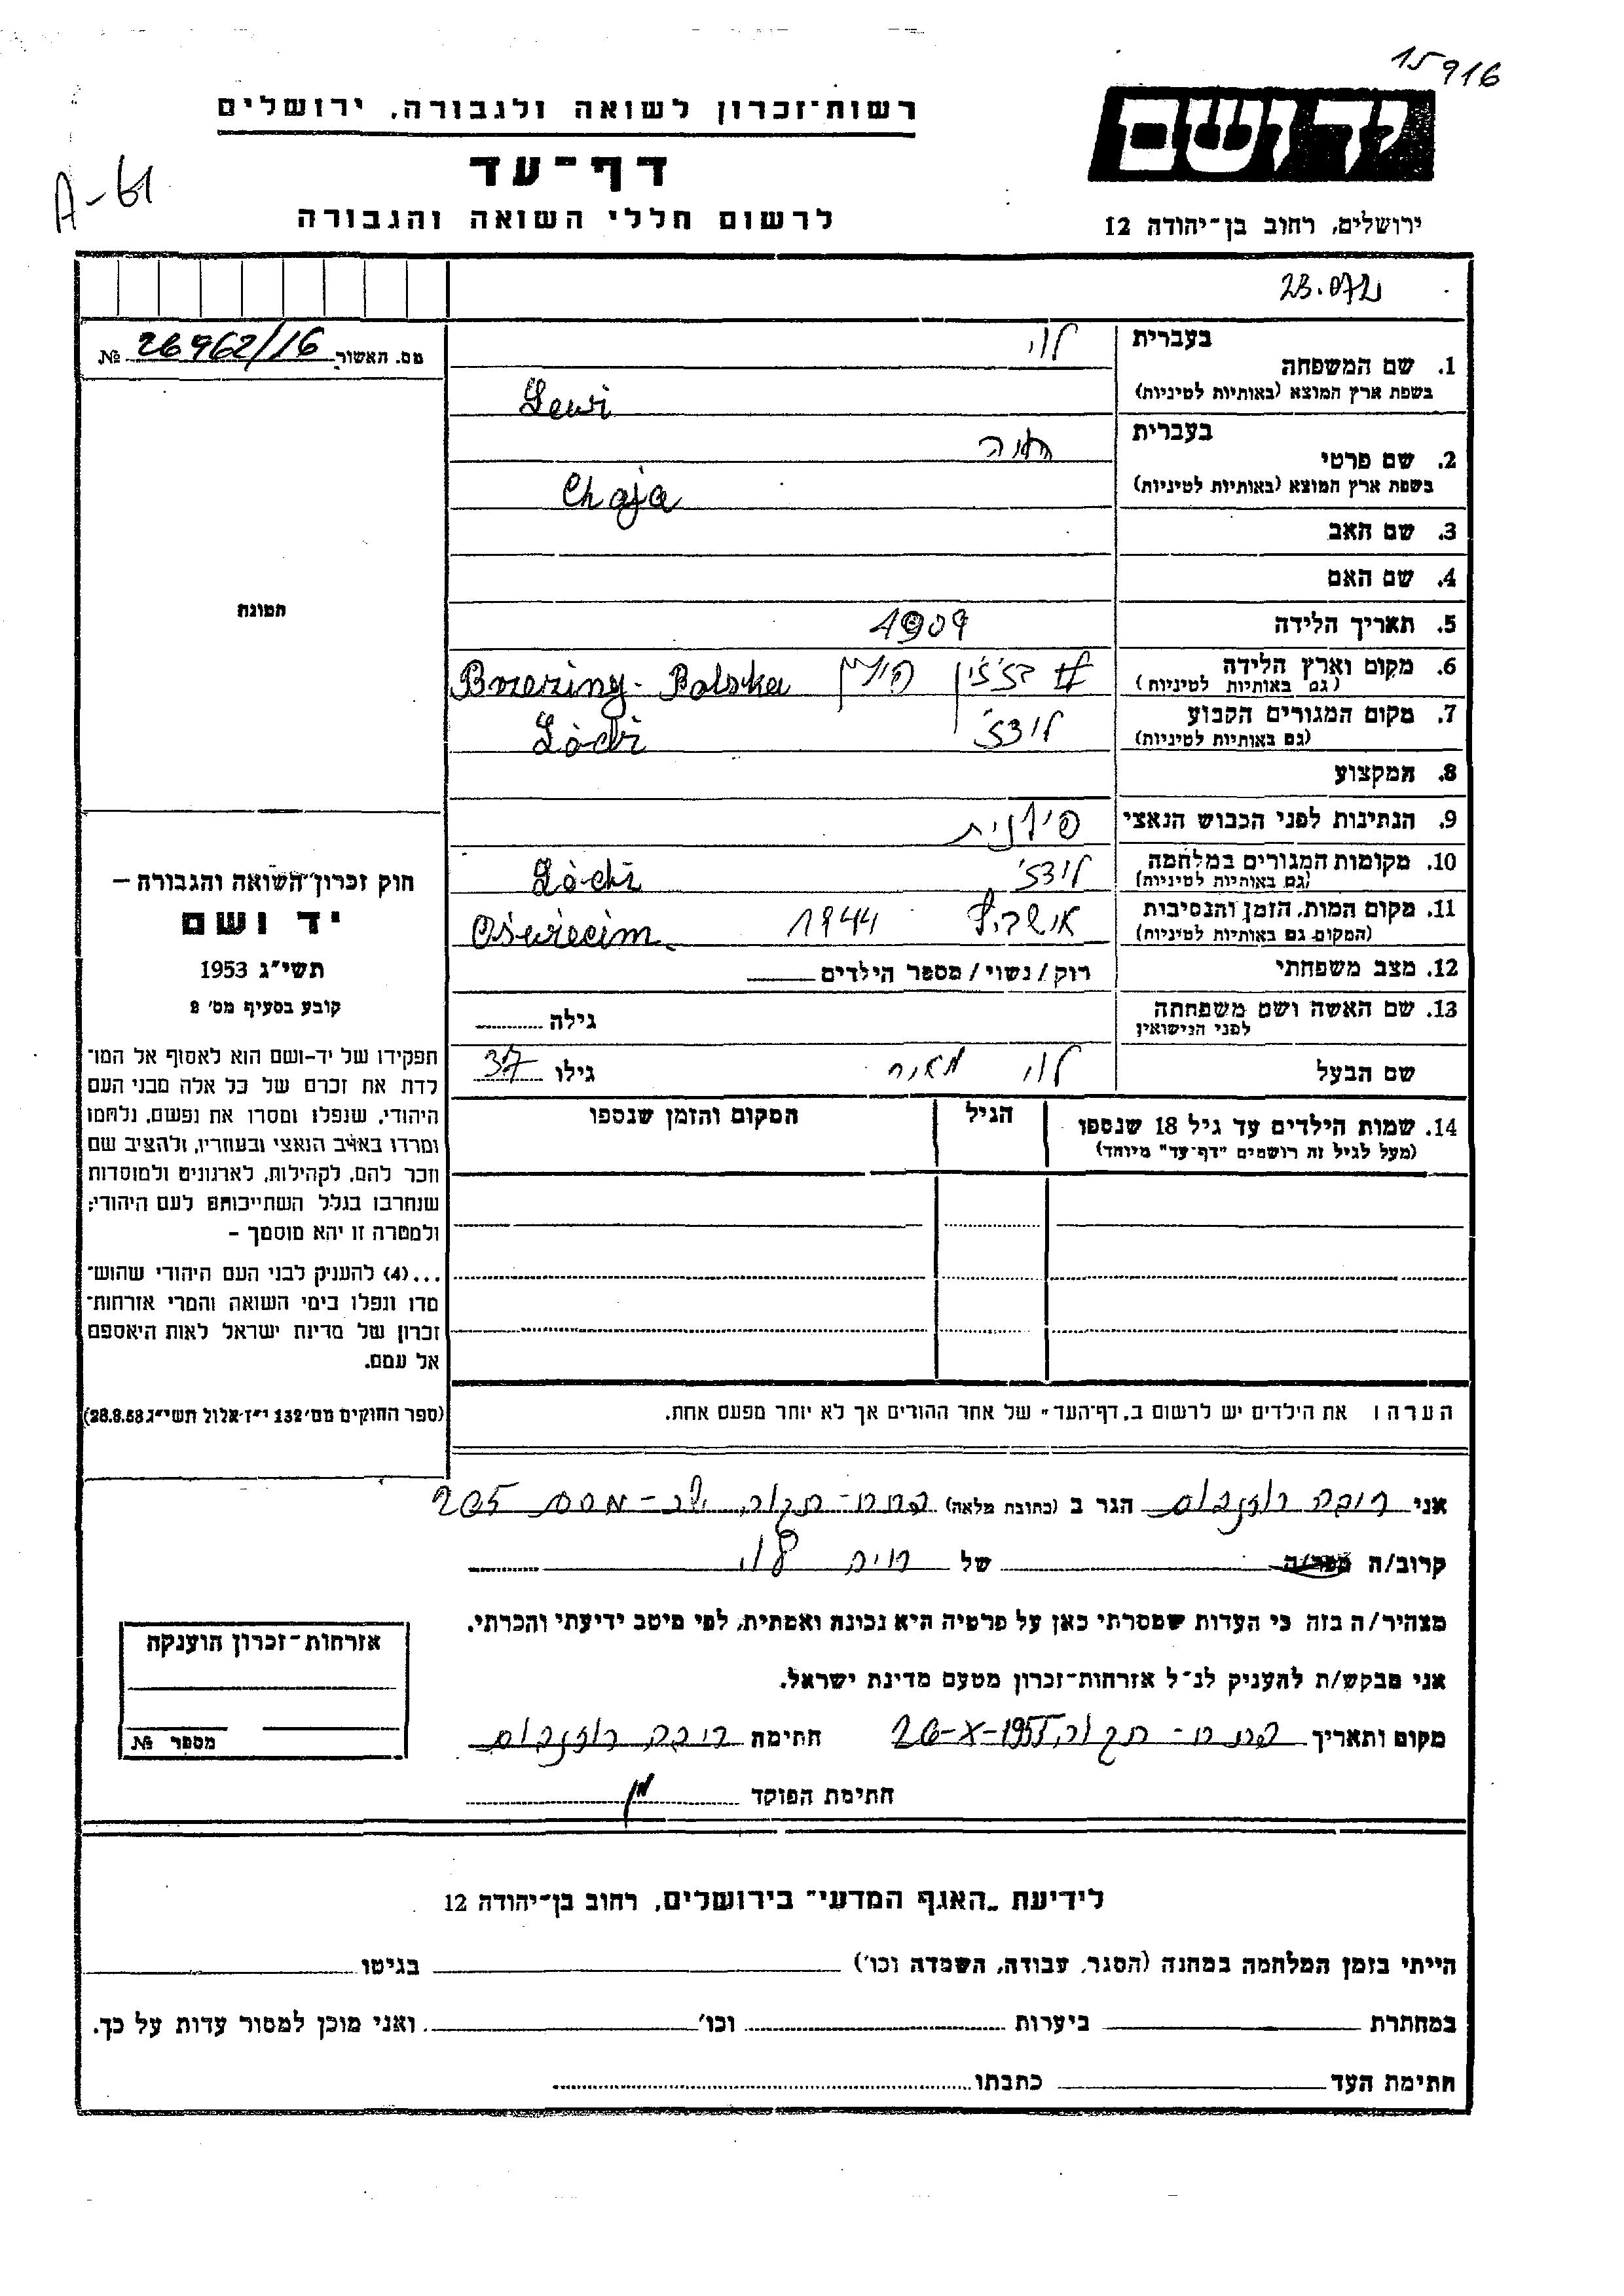 15916
רשות-זכרון לשואה ולגבורה, ירושלים
יד ושם
דף-עד
A-61
לרשום חללי השואה והגבורה
ירושלים, רחוב בן-יהודה 12
בעברית לוי
1. שם המשפחה
בשפת ארץ המוצא (באותיות לטיניות) Lewi
מס. האשור 26962/16 №
בעברית חיה
2. שם פרטי
בשפת ארץ המוצא (באותיות לטיניות) Chaja
3. שם האב
4. שם האם
5. תאריך הלידה 1909
6. מקום וארץ הלידה
(גם באותיות לטיניות) ברז'ין פולין Brzeziny - Polska
7. מקום המגורים הקבוע
(גם באותיות לטיניות) לודז' Łódź
8. המקצוע
9. הנתינות לפני הכבוש הנאצי פולנית
10. מקומות המגורים במלחמה
(גם באותיות לטיניות) לודז' Łódź
11. מקום המות, הזמן והנסיבות
(המקום גם באותיות לטיניות) 1944 Oświęcim
12. מצב משפחתי רוק/נשוי/מספר הילדים
13. שם האשה ושם משפחתה
לפני הנישואין גילה
שם הבעל לוי מאיר גילו 37
14. שמות הילדים עד גיל 18 שנספו הגיל המקום והזמן שנספו
(מעל לגיל זה רושמים "דף-עד" מיוחד)
התמונה
חוק זכרון השואה והגבורה –
יד ושם
תשי"ג 1953
קובע בסעיף מס' 2
תפקידו של יד-ושם הוא לאסוף אל המו־
לדת את זכרם של כל אלה מבני העם
היהודי, שנפלו ומסרו את נפשם, נלחמו
ומרדו באויב הנאצי ובעוזריו, ולהציב שם
וזכר להם, לקהילות, לארגונים ולמוסדות
שנחרבו בגלל השתייכותם לעם היהודי;
ולמטרה זו יהא מוסמך –
...(4) להעניק לבני העם היהודי שהוש־
מדו ונפלו בימי השואה והמרי אזרחות־
זכרון של מדינת ישראל לאות היאספם
אל עמם.
(ספר החוקים מס' 132 י"ז אלול תשי"ג 28.8.53)
הערה: את הילדים יש לרשום ב"דף-העד" של אחד ההורים אך לא יותר מפעם אחת.
אני רבקה רוזנבלום הגר ב (כתובת מלאה) 205
קרוב/ה מכר/ה של חיה לוי
מצהיר/ה בזה כי העדות שמסרתי כאן על פרטיה היא נכונה ואמתית, לפי מיטב ידיעתי והכרתי.
אני מבקש/ת להעניק לנ"ל אזרחות-זכרון מטעם מדינת ישראל.
מקום ותאריך 26-X-1955 חתימה רבקה רוזנבלום
חתימת הפוקד
אזרחות-זכרון הוענקה
מספר №
לידיעת "האגף המדעי" בירושלים, רחוב בן-יהודה 12
הייתי בזמן המלחמה במחנה (הסגר, עבודה, השמדה וכו') בגיטו
במחתרת ביערות וכו' ואני מוכן למסור עדות על כך.
חתימת העד כתבתו